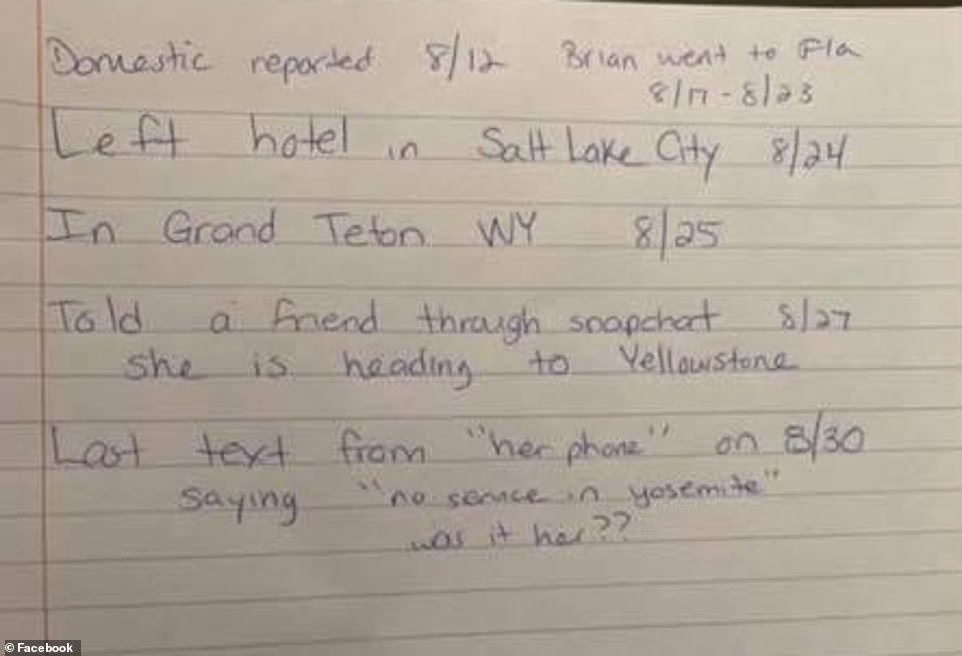 Domestic reported 8/12 Brian went to Fla
8/17 - 8/23
Left hotel in Salt Lake City 8/24
In Grand Teton WY 8/25
Told a friend through snapchat 8/27
she is heading to Yellowstone
Last text from "her phone" on 8/30
saying "no service in yosemite"
was it her??
© Facebook